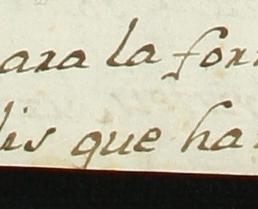 ara la for
lis que ha